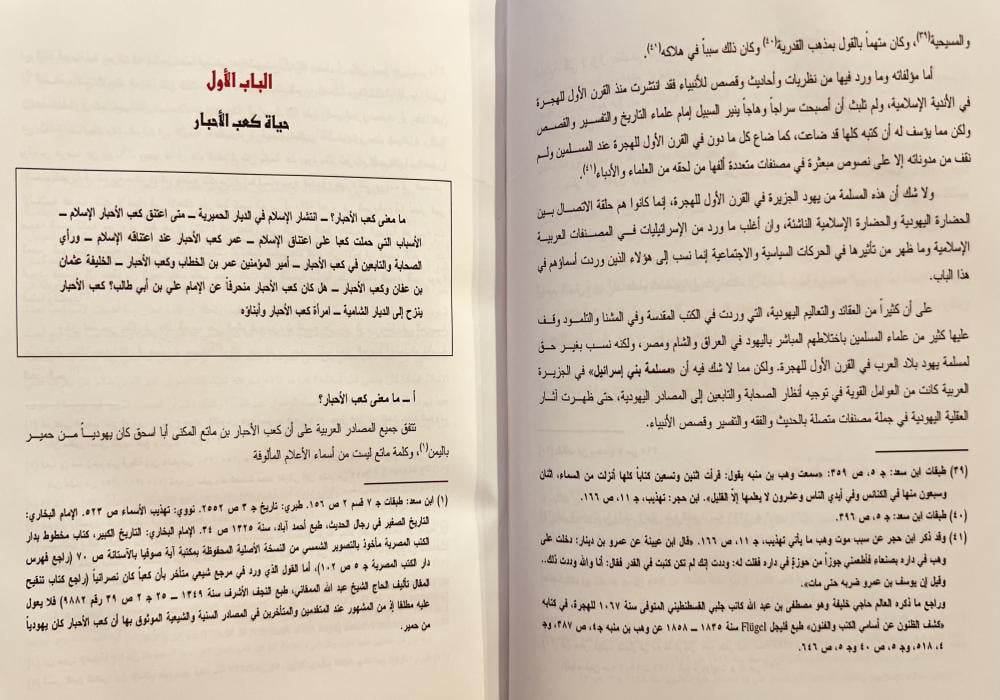 والمسيحية(٣٩)، وكان متهماً بالقول بمذهب القدرية(٤٠) وكان ذلك سبباً في هلاكه(٤١).
أما مؤلفاته وما ورد فيها من نظريات وأحاديث وقصص للأنبياء فقد انتشرت منذ القرن الأول للهجرة
في الأندية الإسلامية، ولم تلبث أن أصبحت سراجاً وهاجاً ينير السبيل إمام علماء التاريخ والتفسير والقصص
ولكن مما يؤسف له أن كتبه كلها قد ضاعت، كما ضاع كل ما دون في القرن الأول للهجرة عند المسلمين ولم
نقف من مدوناته إلا على نصوص مبعثرة في مصنفات متعددة ألفها من لحقه من العلماء والأدباء(٤١).
ولا شك أن هذه المسلمة من يهود الجزيرة في القرن الأول للهجرة، إنما كانوا هم حلقة الاتصال بين
الحضارة اليهودية والحضارة الإسلامية الناشئة، وان أغلب ما ورد من الإسرائيليات في المصنفات العربية
الإسلامية وما ظهر من تأثيرها في الحركات السياسية والاجتماعية إنما نسب إلى هؤلاء الذين وردت أسماؤهم في
هذا الباب.
على أن كثيراً من العقائد والتعاليم اليهودية، التي وردت في الكتب المقدسة وفي المشنا والتلمود وقف
عليها كثير من علماء المسلمين باختلاطهم المباشر باليهود في العراق والشام ومصر، ولكنه نسب بغير حق
لمسلمة يهود بلاد العرب في القرن الأول للهجرة. ولكن مما لا شك فيه أن «مسلمة بني إسرائيل» في الجزيرة
العربية كانت من العوامل القوية في توجيه أنظار الصحابة والتابعين إلى المصادر اليهودية، حتى ظهرت آثار
العقلية اليهودية في جملة مصنفات متصلة بالحديث والفقه والتفسير وقصص الأنبياء.
(٣٩) طبقات ابن سعد: جـ ٥، ص ٣٥٩: «سمعت وهب بن منبه يقول: قرأت اثنين وتسعين كتاباً كلها أنزلت من السماء، اثنان
وسبعون منها في الكنائس وفي أيدي الناس وعشرون لا يعلمها إلّا القليل». ابن حجر: تهذيب، جـ ١١، ص ١٦٦.
(٤٠) طبقات ابن سعد: جـ ٥، ص ٣٩٦.
(٤١) وقد ذكر ابن حجر عن سبب موت وهب ما يأتي تهذيب، جـ ١١، ص ١٦٦. «قال ابن عيينة عن عمرو بن دينار: دخلت على
وهب في داره بصنعاء فأطعمني جوزاً من حوزةٍ في داره فقلت له: وددت إنك لم تكن كتبت في القدر فقال: أنا والله وددت ذلك..
وقيل إن يوسف بن عمرو ضربه حتى مات».
وراجع ما ذكره العالم حاجي خليفة وهو مصطفى بن عبد الله كاتب جلبي القسطنطيني المتوفى سنة ١٠٦٧ للهجرة، في كتابه
«كشف الظنون عن أسامي الكتب والفنون» طبع فليجل Flügel سنة ١٨٣٥ ــ ١٨٥٨ عن وهب بن منبه جـ٤، ص ٣٨٧، وجـ
٤، ٥١٨، وجـ ٥، ص ٤٠ وجـ ٥، ص ٦٤٦.
الباب الأول
حياة كعب الأحبار
ما معنى كعب الأحبار؟ ــ انتشار الإسلام في الديار الحميرية ــ متى اعتنق كعب الأحبار الإسلام ــ
الأسباب التي حملت كعبا على اعتناق الإسلام ــ عمر كعب الأحبار عند اعتناقه الإسلام ــ ورأي
الصحابة والتابعين في كعب الأحبار ــ أمير المؤمنين عمر بن الخطاب وكعب الأحبار ــ الخليفة عثمان
بن عفان وكعب الأحبار ــ هل كان كعب الأحبار منحرفاً عن الإمام علي بن أبي طالب؟ كعب الأحبار
ينزح إلى الديار الشامية ــ امرأة كعب الأحبار وأبناؤه
أ ــ ما معنى كعب الأحبار؟
تتفق جميع المصادر العربية على أن كعب الأحبار بن ماتع المكنى أبا اسحق كان يهودياً من حمير
باليمن(١)، وكلمة ماتع ليست من أسماء الأعلام المألوفة
(١) ابن سعد: طبقات جـ ٧ قسم ٢ ص ١٥٦. طبري: تاريخ جـ ٣ ص ٢٥٥٢. نووي: تهذيب الأسماء ص ٥٢٣. الإمام البخاري:
التاريخ الصغير في رجال الحديث، طبع أحمد أباد، سنة ١٣٢٥ ص ٣٤. الإمام البخاري: التاريخ الكبير، كتاب مخطوط بدار
الكتب المصرية مأخوذ بالتصوير الشمسي من النسخة الأصلية المحفوظة بمكتبة آية صوفيا بالآستانة ص ٧٠ (راجع فهرس
دار الكتب المصرية جـ ٥ ص ١٠٢)، أما القول الذي ورد في مرجع شيعي متأخر بأن كعباً كان نصرانياً (راجع كتاب تنقيح
المقال تأليف الحاج الشيخ عبد الله الممقاني، طبع النجف الأشرف سنة ١٣٤٩ ــ ٢٥ جـ ٢ ص ٣٩ رقم ٩٨٨٢) فلا يعول
عليه مطلقا إذ من المشهور عند المتقدمين والمتأخرين في المصادر السنية والشيعية الموثوق بها أن كعب الأحبار كان يهودياً
من حمير.